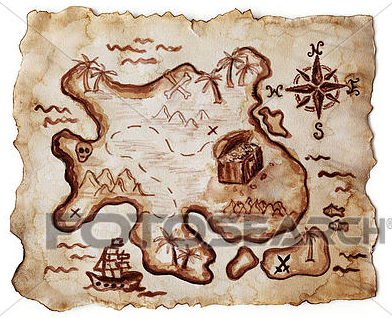 N
W E
S
FOTOSEARCH